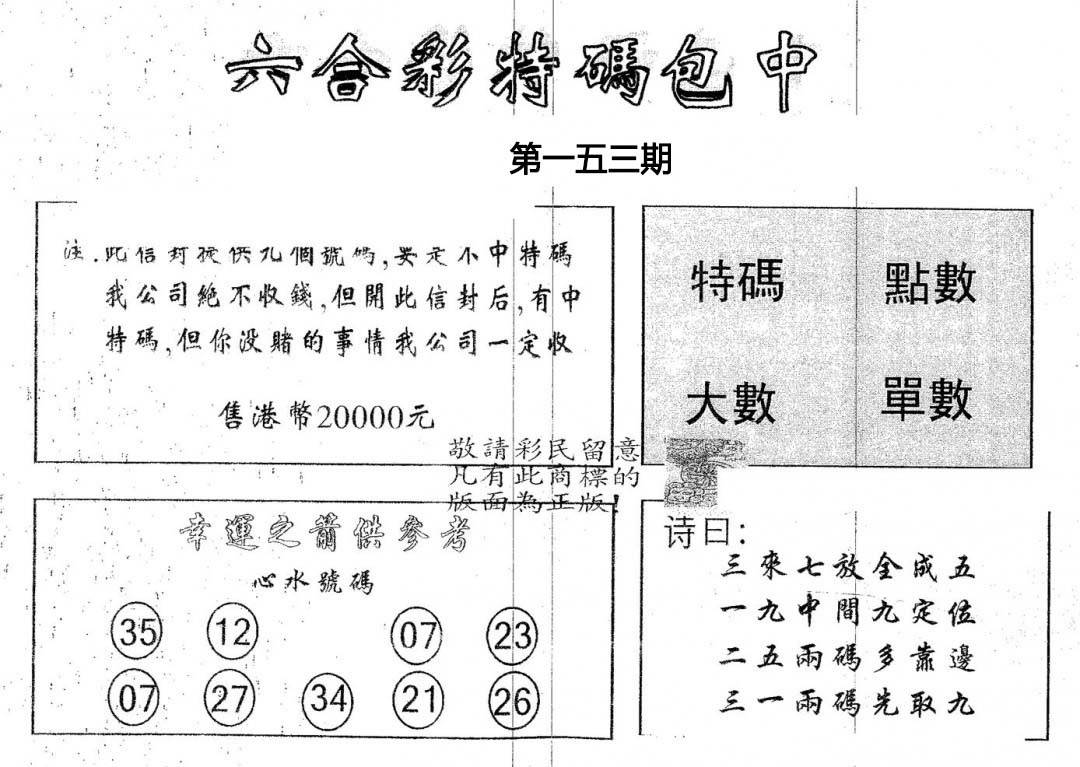 六合彩特碼包中
第一五三期
注.此信封提供九個號碼,要是不中特碼
我公司絕不收錢,但開此信封后,有中
特碼,但你没賭的事情我公司一定收
售港幣20000元
特碼 點數
大數 單數
敬請彩民留意
凡有此商標的
版面為正版!
幸運之箭供參考
心水號碼
35 12 07 23
07 27 34 21 26
诗曰:
三來七放全成五
一九中間九定位
二五兩碼多靠邊
三一兩碼先取九